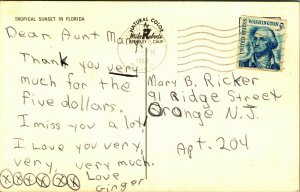 TROPICAL SUNSET IN FLORIDA
Dear Aunt Mary
Thank you very
much for the
five dollars.
I miss you a lot
I Love you very,
very, very much.
XXXX XX Love
Ginger
NATURAL COLOR
Mike Roberts
BERKELEY - CALIF.
WASHINGTON
Mary B. Ricker
91 Ridge Street
Orange N.J.
Apt. 204